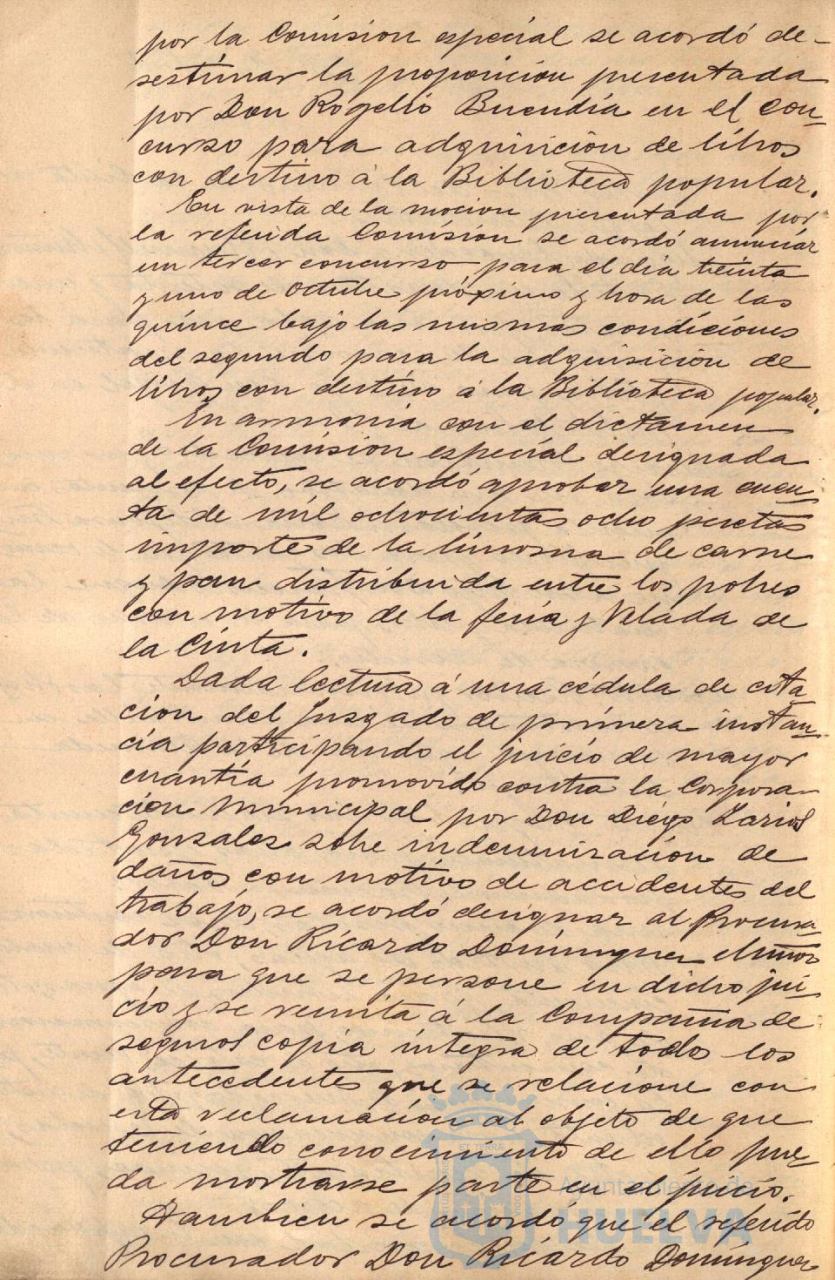 por la Comision especial se acordó de-
sestimar la proposicion presentada
por Don Rogelio Buendia en el con-
curso para adquisicion de libros
con destino á la Biblioteca popular.
En vista de la mocion presentada por
la referida Comision se acordó anunciar
un tercer concurso para el dia treinta
y uno de octubre próximo y hora de las
quince bajo las mismas condiciones
del segundo para la adquisicion de
libros con destino á la Biblioteca popular.
En armonia con el dictamen
de la Comision especial designada
al efecto, se acordó aprobar una cuen-
ta de mil ochocientas ocho pesetas
importe de la limosna de carne
y pan distribuida entre los pobres
con motivo de la feria y Velada de
la Cinta.
Dada lectura á una cédula de cita
cion del Juzgado de primera instan-
cia participando el juicio de mayor
cuantía promovido contra la Corpora-
cion Municipal por Don Diego Larios
Gonzales sobre indemnizacion de
daños con motivo de accidentes del
trabajo, se acordó designar al Procura-
dor Don Ricardo Dominguez
para que se persone en dicho jui-
cio y se remita á la Compañia de
seguros copia integra de todos los
antecedentes que se relacione con
esta reclamacion al objeto de que
teniendo conocimiento de ello pue-
da mostrarse parte en el juicio.
Tambien se acordo que el referido
Procurador Don Ricardo Dominguez
Ayuntamiento de
HUELVA